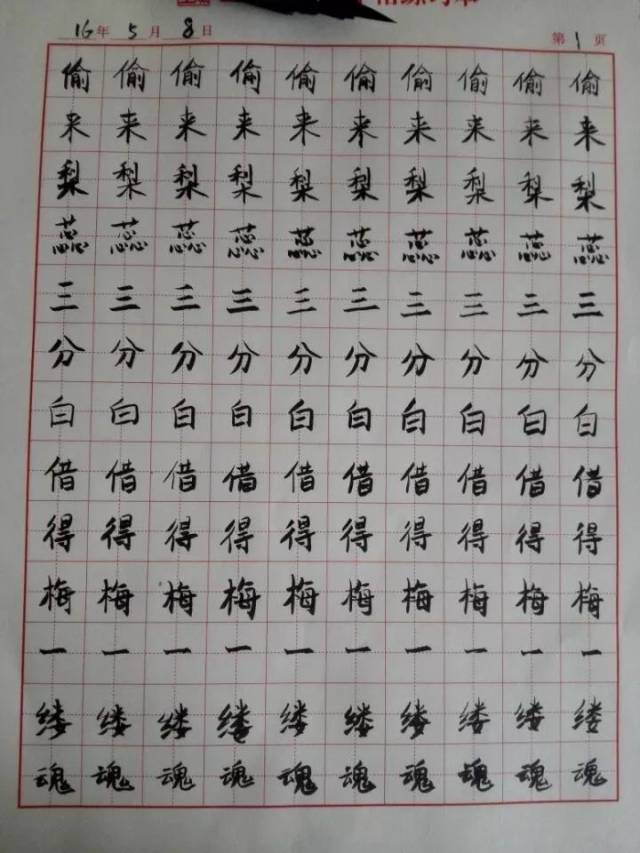 16年 5月 8日 第1页
偷偷偷偷偷偷偷偷偷偷
来来来来来来来来来来
梨梨梨梨梨梨梨梨梨梨
蕊蕊蕊蕊蕊蕊蕊蕊蕊蕊
三三三三三三三三三三
分分分分分分分分分分
白白白白白白白白白白
借借借借借借借借借借
得得得得得得得得得得
梅梅梅梅梅梅梅梅梅梅
一一一一一一一一一一
缕缕缕缕缕缕缕缕缕缕
魂魂魂魂魂魂魂魂魂魂